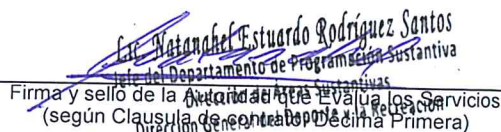 Lic. Natanahel Estuardo Rodríguez Santos
Jefe del Departamento de Programación Sustantiva
Dirección de Áreas Sustantivas
Dirección General del Deporte y la Recreación
Firma y sello de la Autoridad que Evalúa los Servicios
(según Clausula de contrato, Décima Primera)